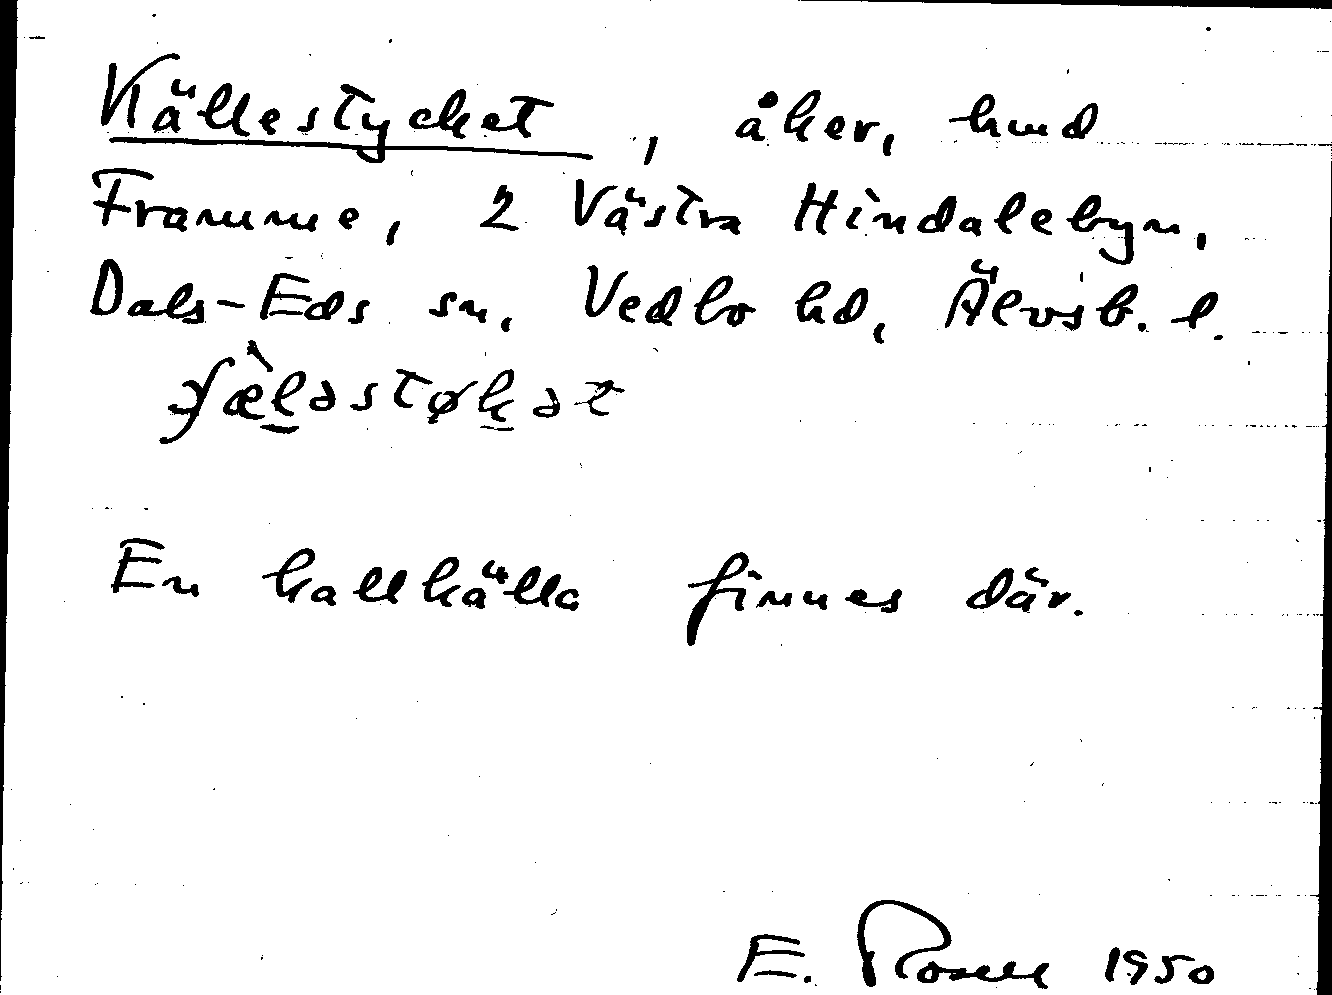 Källestycket, åker, hmd
Framme, 2 Västra Hindalebyn,
Dals-Eds sn, Vedbo hd, Älvsb. l.
En kallkälla finnes där.
E. Rosell 1950